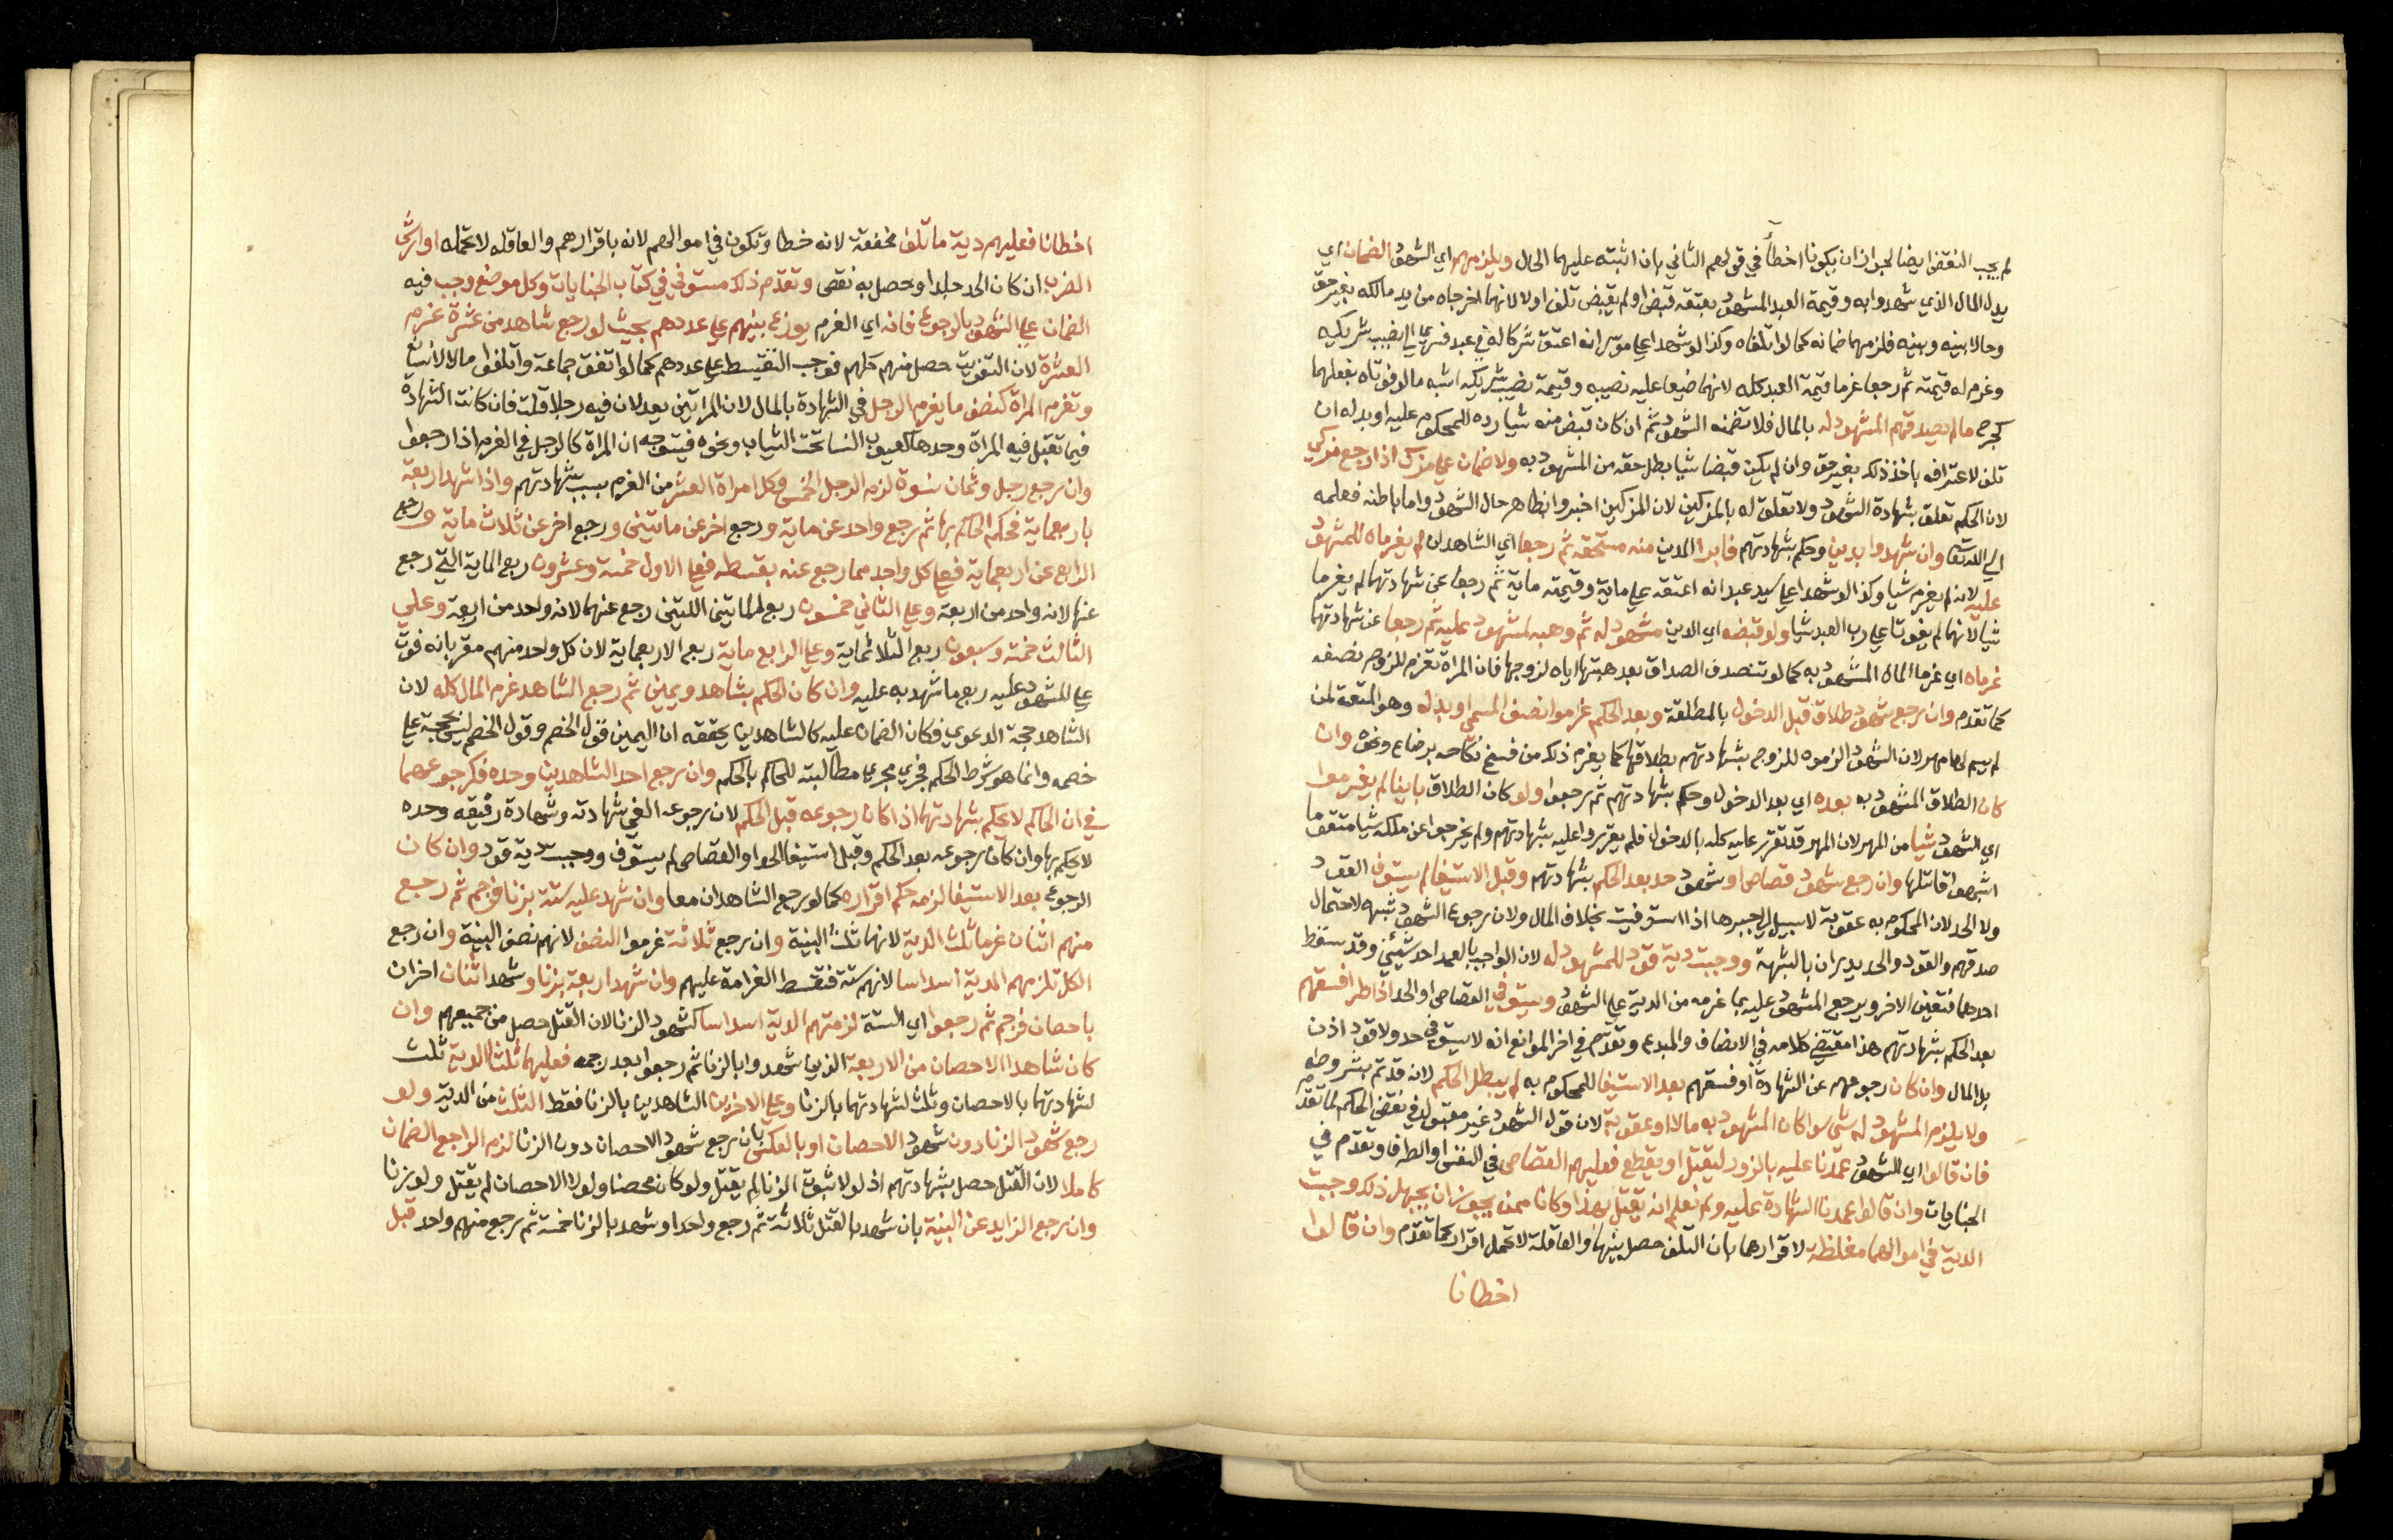 لم يجب النقض ايضا لجواز ان يكونا اخطأ في قولهم الثاني بان اشتبه عليهما الحال ويلزمهم اي الشهود الضمان اي
بدل المال الذي شهدوا به وقيمة العبد المشهود بعتقه قبض او لم يقبض تلف او لا لانهما اخرجاه من يد مالكه بغير حق
وحالا بينه وبينه فلزمهما ضمانه كما لو اتلفاه وكذا لو شهدا على موسر انه اعتق شركا له في عبد فسري الى نصيب شريكه
وغرم له قيمته ثم رجعا غرما قيمة العبد كله لانهما ضيعا عليه نصيبه وقيمة نصيب شريكه اشبه ما لو فوتاه بفعلهما
كجرح مالم يصدقهم المشهود له بالمال فلا تضمنه الشهود ثم ان كان قبض منه شيا رده للمحكوم عليه او بدله ان
تلف لاعترافه باخذ ذلك بغير حق وان لم يكن قبضا شيا بطل حقه من المشهود به ولا ضمان على مزكي اذا رجع مزكي
لان الحكم تعلق بشهادة الشهود ولا تعلق له بالمزكين لان المزكين اخبروا بظاهر حال الشهود واما باطنه فعلمه
الى الله تعا وان شهدوا بدين وحكم بشهادتهم فابرا المدين منه مستحقه ثم رجعا اي الشاهدان لم يغرماه للمشهود
عليه لانه لم يغرم شيا وكذا لو شهدا على سيد عبد انه اعتقه على ماية وقيمته ماية ثم رجعا عن شهادتهما لم يغرما
شيا لانهما لم يفوتا على رب العبد شيا ولو قبضه اي الدين مشهود له ثم وهبه لمشهود عليه ثم رجعا عن شهادتهما
غرماه اي غرما المال المشهود به كما لو تنصف الصداق بعد هبتها اياه لزوجها فان المراة تغرم للزوج نصفه
كما تقدم وان رجع شهود طلاق قبل الدخول بالمطلقة وبعد الحكم غرموا نصف المسمى او بدله وهو المتعة لمن
لم يسم لها مهر لان الشهود الزموه للزوج بشهادتهم بطلاقها كما يغرم ذلك من فسخ نكاحه برضاع ونحوه وان
كان الطلاق المشهود به بعده اي بعد الدخول وحكم بشهادتهم ثم رجعوا ولو كان الطلاق باينا لم يغرموا
اي الشهود شيا من المهر لان المهر قد تقرر عليه كله بالدخول فلم يقرروا عليه بشهادتهم ولم يخرجوا عن ملكه شيا متقوما
اشبهوا قاتلها وان رجع شهود قصاص او شهود حد بعد الحكم بشهادتهم وقبل الاستيفا لم يستوف القود
ولا الحد لان المحكوم به عقوبة لا سبيل الى جبرها اذا استوفيت بخلاف المال ولان رجوع الشهود شبهه لاحتمال
صدقهم والقود والحد يدران بالشبهة ووجبت دية قود للمشهود له لان الواجب بالعمد احد شيئين وقد سقط
احدهما فتعين الاخر ويرجع المشهود عليه بما غرمه من الدية على الشهود ويستوفى القصاص او الحد اذا طرا فسقهم
بعد الحكم بشهادتهم هذا مقتضى كلامه في الانصاف والمبدع وتقدم في اخر الموانع انه لا يستوفى حد ولا قود اذن
بل المال وان كان رجوعهم عن الشهادة او فسقهم بعد الاستيفا للمحكوم به لم يبطل الحكم لانه قد تم بشروطه
ولا يلزم المشهود له شي سوا كان المشهود به مالا او عقوبة لان قول الشهود غير مقبول في نقض الحكم لما تقدم
فان قالوا اي الشهود عمدنا عليه بالزور ليقتل او يقطع فعليهم القصاص في النفس او الطرف وتقدم في
الجنايات وان قالوا عمدنا الشهادة عليه ولم نعلم انه يقتل بهذا وكانا ممن يجوز ان يجهل ذلك وجبت
الدية في اموالهما مغلظة لاقرارهما بان التلف حصل بينهما والعاقلة لا تحمل اقرار كما تقدم وان قالوا
اخطانا
اخطانا فعليهم دية ما تلف مخففة لانه خطا وتكون في اموالهم لانه باقرارهم والعاقله لا تحمله او ارش
الضرب ان كان الحد جلدا وحصل به نقص وتقدم ذلك مستوفى في كتاب الجنايات وكل موضع وجب فيه
الضمان على الشهود بالرجوع فانه اي الغرم يوزع بينهم على عددهم بحيث لو رجع شاهد من عشرة غرم
العشر لان التفويت حصل منهم كلهم فوجب التقسيط على عددهم كما لو اتفق جماعة واتلفوا مالا لانسان
وتغرم المراة كنصف ما يغرم الرجل في الشهادة بالمال لان المراتين يعدلان فيه رجلا قلت فان كانت الشهادة
فيما تقبل فيه المراة وحدها كعيوب النسا تحت الثياب ونحوه فيتوجه ان المراة كالرجل في الغرم اذا رجعوا
وان رجع رجل وثمان نسوة لزم الرجل الخمس وكل امراة العشر من الغرم بسبب شهادتهم واذا شهد اربعة
باربعماية فحكم الحاكم بها ثم رجع واحد عن ماية ورجع اخر عن مايتين ورجع اخر عن ثلاث ماية ورجع
الرابع عن اربعماية فعلى كل واحد مما رجع عنه بقسطه فعلى الاول خمسة وعشرون ربع الماية التي رجع
عنها لانه واحد من اربعة وعلى الثاني خمسون ربع المايتين اللتين رجع عنهما لانه واحد من اربعة وعلى
الثالث خمسة وسبعون ربع الثلاثماية وعلى الرابع ماية ربع الاربعماية لان كل واحد منهم مقر بانه فوت
على المشهود عليه ربع ما شهد به عليه وان كان الحكم بشاهد ويمين ثم رجع الشاهد غرم المال كله لان
الشاهد حجة الدعوي فكان الضمان عليه كالشاهدين يحققه ان اليمين قول الخصم وقول الخصم ليس حجة على
خصمه وانما هو شرط الحكم فجري مجري مطالبته للحاكم بالحكم وان رجع احد الشاهدين وحده فكرجوعهما
في ان الحاكم لا يحكم بشهادتهما اذا كان رجوعه قبل الحكم لان رجوعه الغى شهادته وشهادة رفيقه وحده
لا يحكم بها وان كان رجوعه بعد الحكم وقبل استيفا الحد او القصاص لم يستوف ووجبت دية قود وان كان
الرجوع بعد الاستيفا لزمه حكم اقراره كما لو رجع الشاهدان معا وان شهد عليه ستة بزنا فرجم ثم رجع
منهم اثنان غرما ثلث الدية لانهما ثلث البينة وان رجع ثلاثة غرموا النصف لانهم نصف البينة وان رجع
الكل تلزمهم الدية اسداسا لانهم ستة فتقسط الغرامة عليهم وان شهد اربعة بزنا وشهد اثنان اخران
باحصان فرجم ثم رجعوا اي الستة لزمتهم الدية اسداسا كشهود الزنا لان القتل حصل من جميعهم وان
كان شاهدا الاحصان من الاربعة الذين شهدوا بالزنا ثم رجعوا بعد رجمه فعليهما ثلثا الدية ثلث
لشهادتهما بالاحصان وثلث لشهادتهما بالزنا وعلى الاخرين الشاهدين بالزنا فقط الثلث من الدية ولو
رجع شهود الزنا دون شهود الاحصان او بالعكس بان رجع شهود الاحصان دون الزنا لزم الراجع الضمان
كاملا لان القتل حصل بشهادتهم اذ لولا ثبوت الزنا لم يقتل ولو كان محصنا ولولا الاحصان لم يقتل ولو بزنا
وان رجع الزايد عن البينة بان شهد بالقتل ثلاثة ثم رجع واحد او شهد بالزنا خمسة ثم رجع منهم واحد قبل